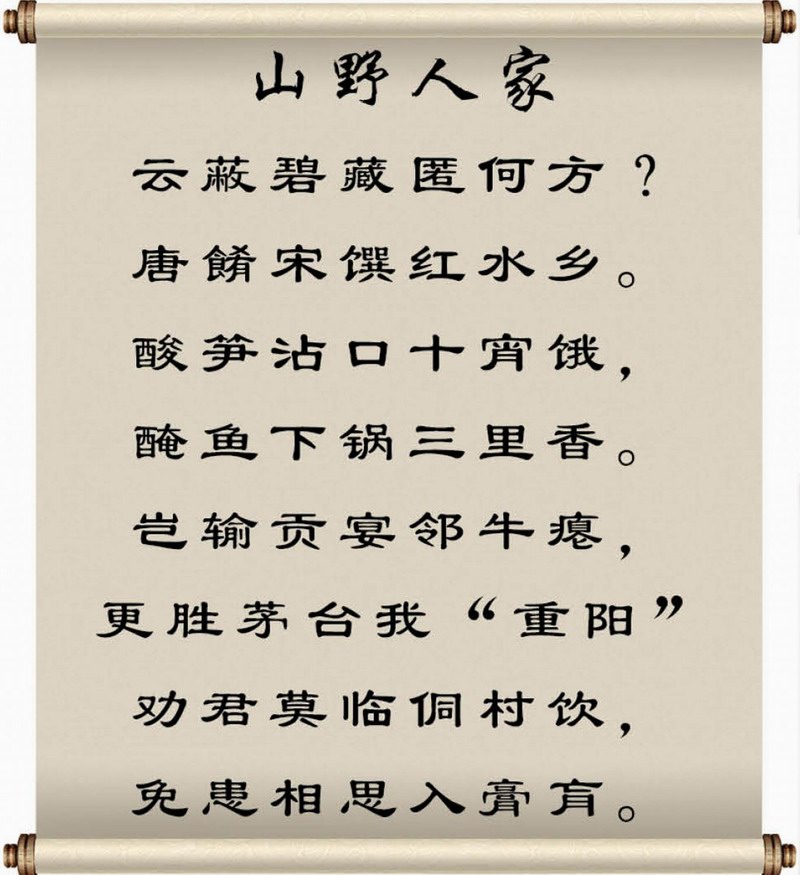 山野人家
云蔽碧藏匿何方？
唐餚宋馔红水乡。
酸笋沾口十宵饿，
醃鱼下锅三里香。
岂输贡宴邻牛瘪，
更胜茅台我“重阳”
劝君莫临侗村饮，
免患相思入膏肓。